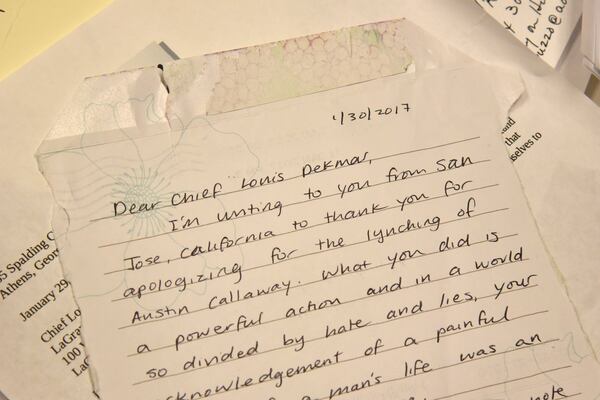 1/30/2017
Dear Chief Louis Dekmar,
I'm writing to you from San
Jose, California to thank you for
apologizing for the lynching of
Austin Callaway. What you did is
a powerful action and in a world
so divided by hate and lies, your
knowledgement of a painful
a man's life was an
note
5 Spalding
Athens, Geor
January 29
Chief Lo
LaGra
100
LaG
and
that
selves to